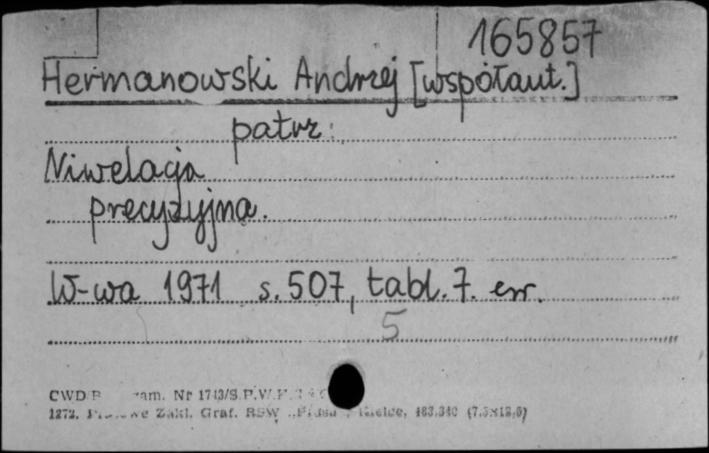 165857
Hermanowski Andrzej [współaut.]
patrz:
Niwelacja
precyzyjna.
W-wa 1971 s. 507, tabl. 7. err.
5
CWD zam. Nr 1743/S.P.W.
1272. Zakł. Graf. RSW „Prasa" Kielce, 483.340 (7,5×12,5)